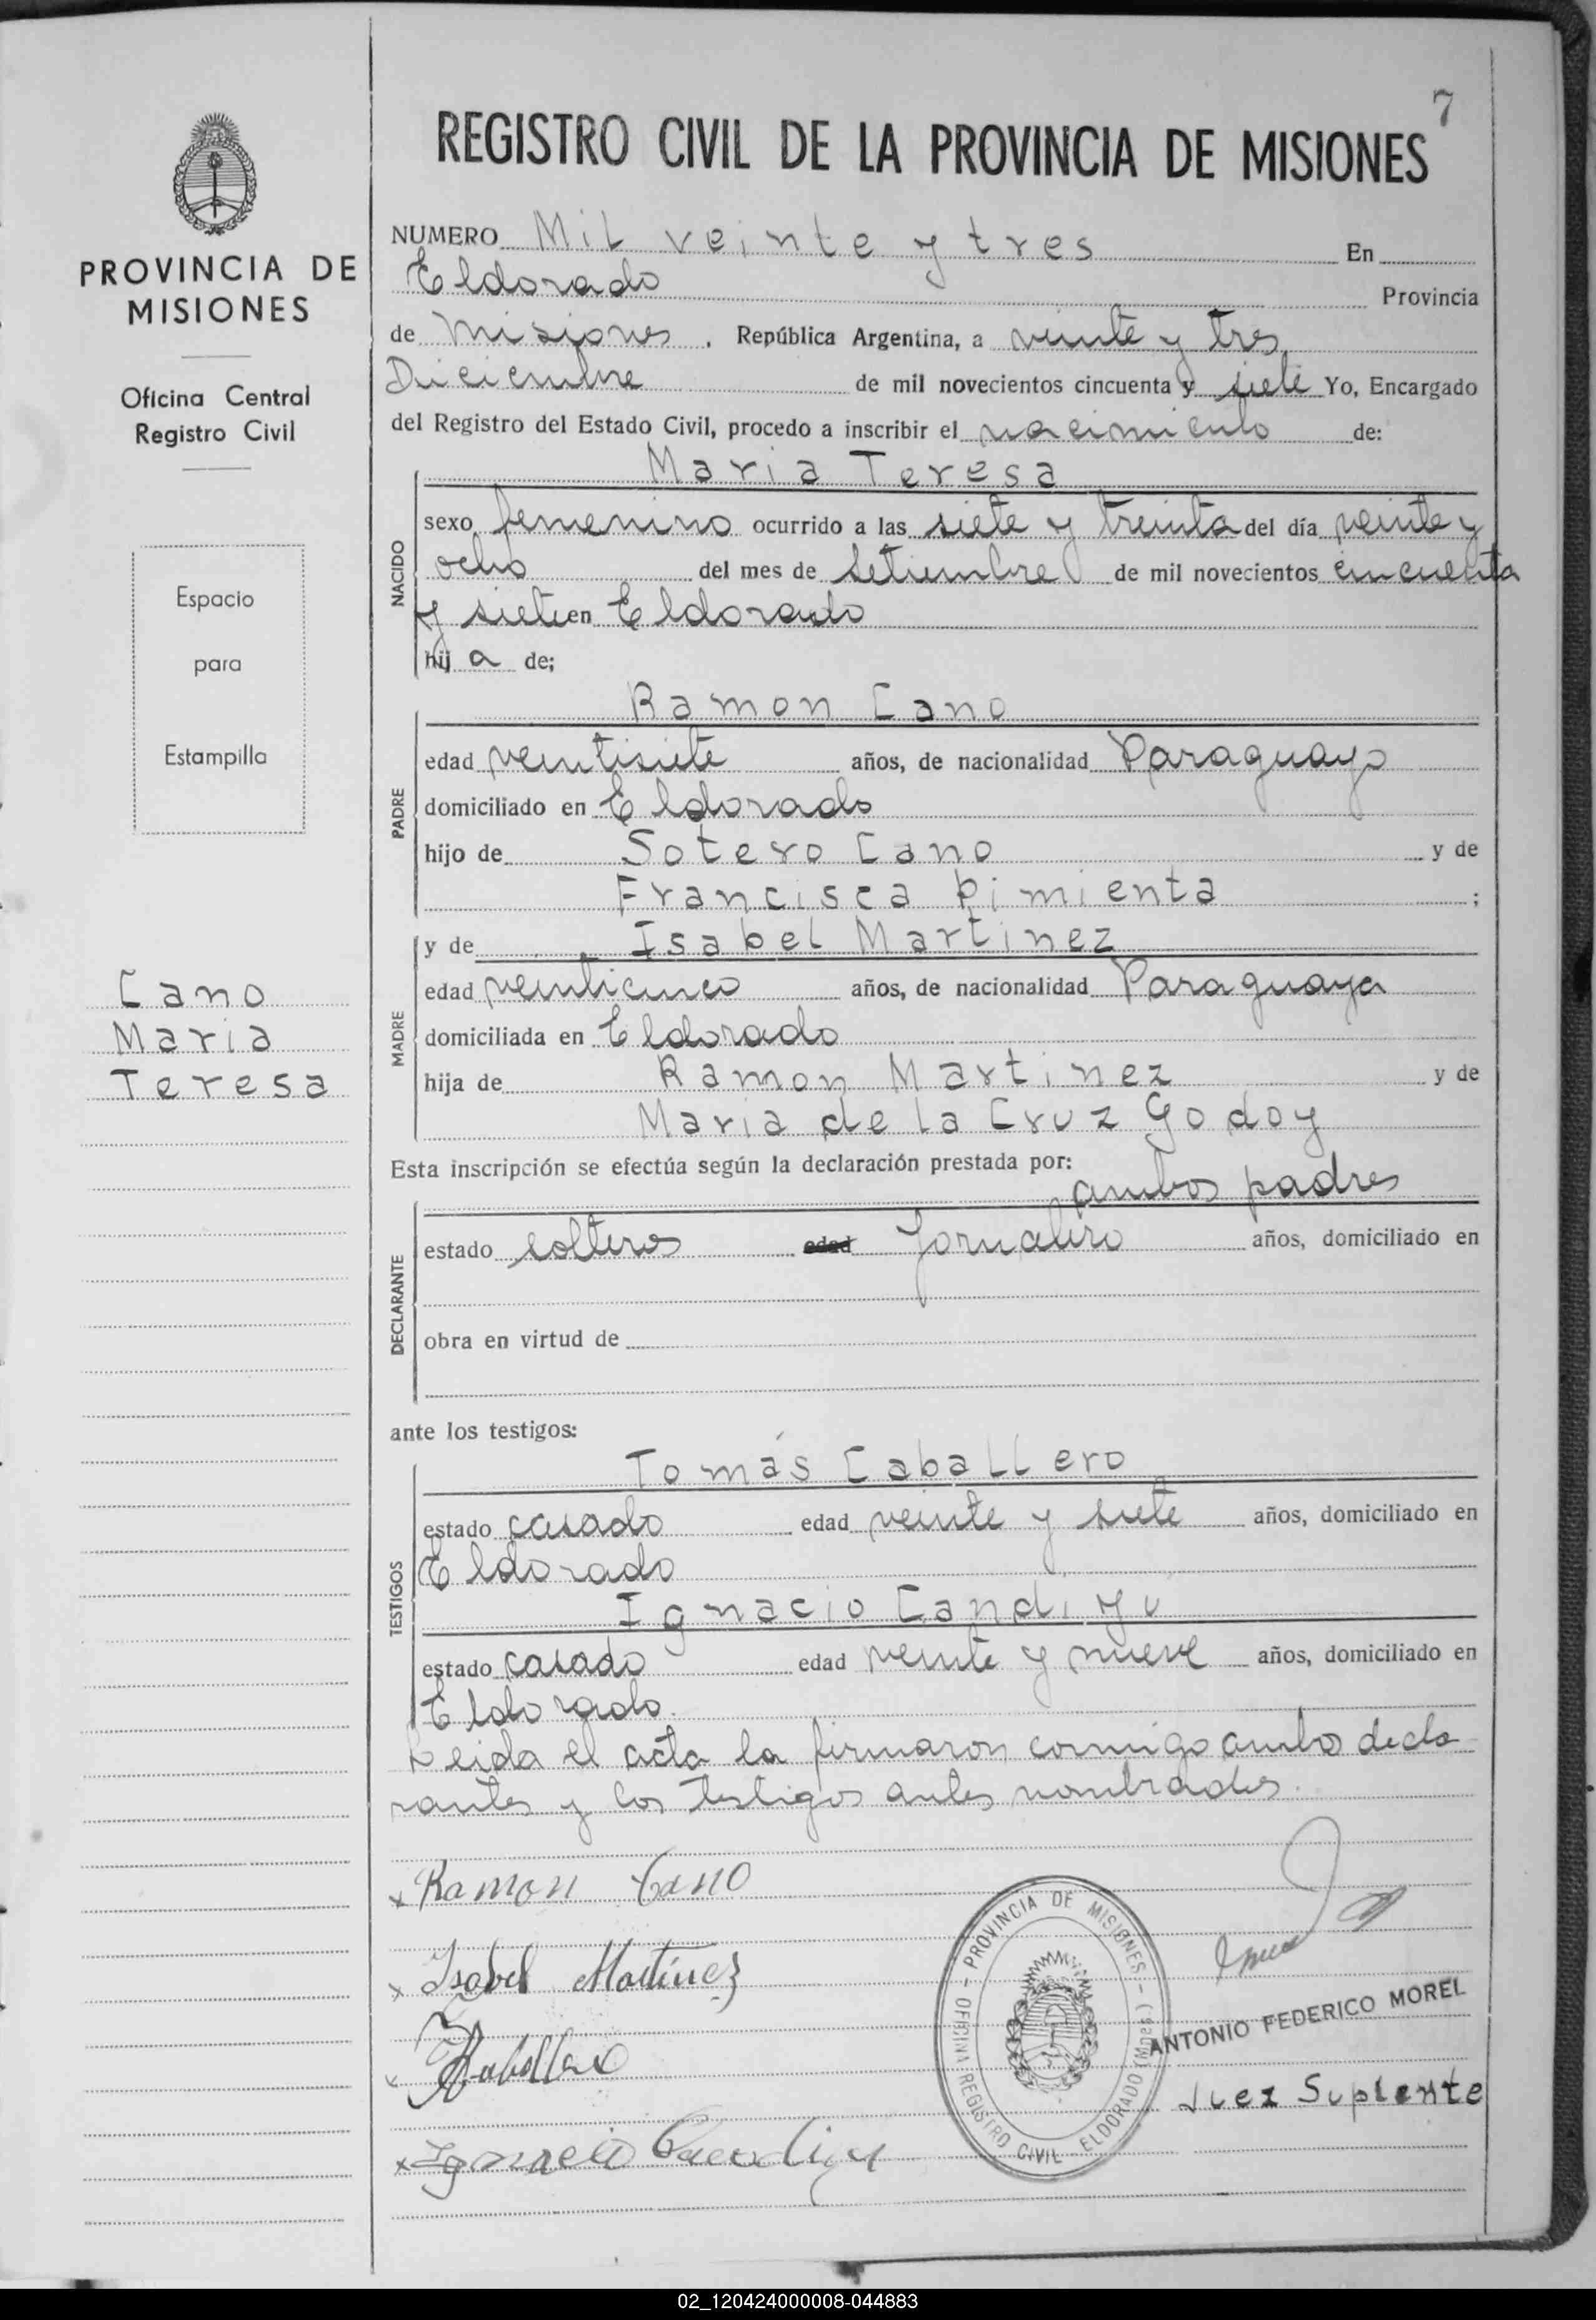 7
REGISTRO CIVIL DE LA PROVINCIA DE MISIONES
PROVINCIA DE
MISIONES
Oficina Central
Registro Civil
Espacio
para
Estampilla
Cano
Maria
Teresa
NUMERO Mil veinte y tres En
Eldorado Provincia
de Misiones, República Argentina, a veinte y tres
Diciembre de mil novecientos cincuenta y siete Yo, Encargado
del Registro del Estado Civil, procedo a inscribir el nacimiento de:
Maria Teresa
NACIDO
sexo femenino ocurrido a las siete y treinta del día veinte y
ocho del mes de Setiembre de mil novecientos cincuenta
y siete en Eldorado
hija de;
Ramon Cano
PADRE
edad veintisiete años, de nacionalidad Paraguayo
domiciliado en Eldorado
hijo de Sotero Cano y de
Francisca Pimienta ;
y de Isabel Martinez
MADRE
edad veinticinco años, de nacionalidad Paraguaya
domiciliada en Eldorado
hija de Ramon Martinez y de
Maria de la Cruz Godoy
Esta inscripción se efectúa según la declaración prestada por:
ambos padres
DECLARANTE
estado solteros edad Jornalero años, domiciliado en
obra en virtud de
ante los testigos:
Tomás Caballero
TESTIGOS
estado casado edad veinte y siete años, domiciliado en
Eldorado
Ignacio Candiyú
estado casado edad veinte y nueve años, domiciliado en
Eldorado.
Leida el acta la firmaron conmigo ambos decla
rantes y los testigos antes nombrados.
x Ramon Cano
x Isabel Martínez
x Caballero
x Ignacio Candiyu
OFICINA REGISTRO CIVIL - ELDORADO (Mnes) - PROVINCIA DE MISIONES -
ANTONIO FEDERICO MOREL
Juez Suplente
02_120424000008-044883